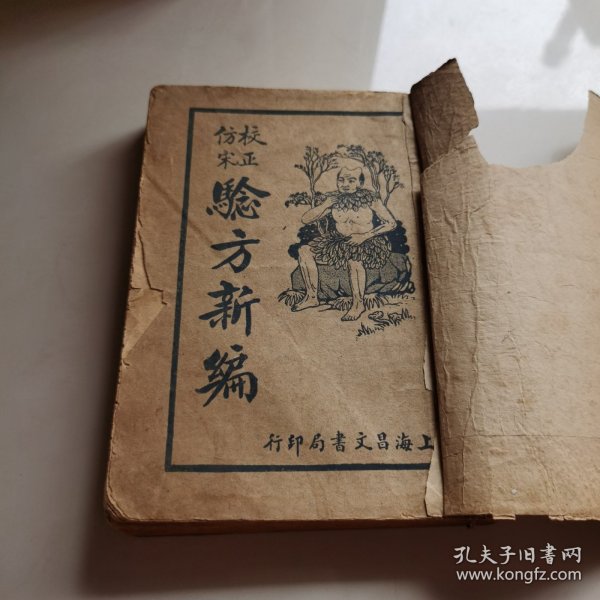 校正
仿宋
驗方新編
上海昌文書局印行
孔夫子旧書网
www.kongfz.com